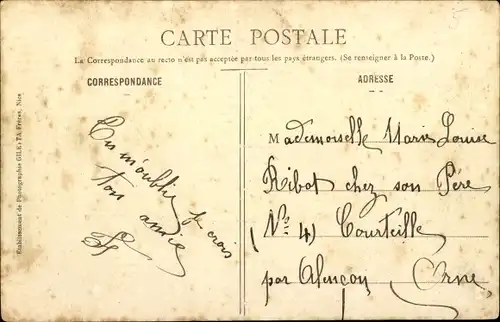 CARTE POSTALE
La Correspondance au recto n'est pas acceptée par tous les pays étrangers. (Se renseigner à la Poste.)
CORRESPONDANCE
ADRESSE
Tu m'oublis je crois
Ton amie
Mademoiselle Marie Louise
Ribot chez son Père
(No 4) Courteille
par Alençon Orne
Etablissement de Photographie GILETTA Frères, Nice
5